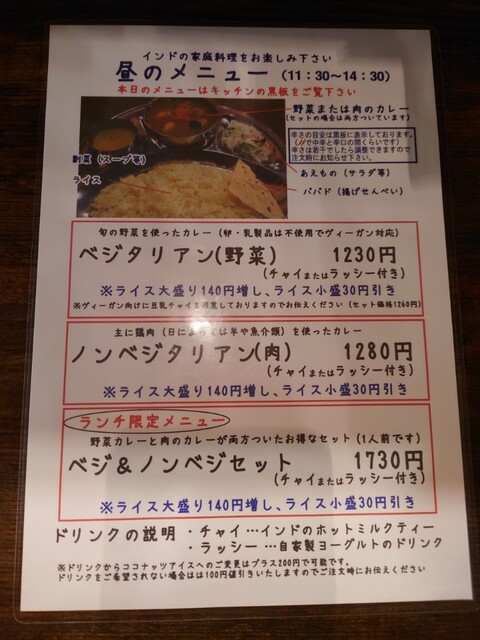 インドの家庭料理をお楽しみ下さい
昼のメニュー (11:30~14:30)
本日のメニューはキッチンの黒板をご覧下さい
野菜または肉のカレー
(セットの場合は両方ついています)
辛さの目安は黒板に表示しております。
で中辛と辛口の間くらいです)
辛さは若干でしたら調整できますので
注文時にお知らせ下さい。
野菜 (スープ等)
あえもの (サラダ等)
ライス
パパド (揚げせんべい)
旬の野菜を使ったカレー (卵・乳製品は不使用でヴィーガン対応)
ベジタリアン(野菜) 1230円
(チャイまたはラッシー付き)
※ライス大盛り140円増し、ライス小盛30円引き
※ヴィーガン向けに豆乳チャイを用意しておりますのでお伝えください (セット価格1260円)
主に鶏肉 (日によっては羊や魚介類) を使ったカレー
ノンベジタリアン(肉) 1280円
(チャイまたはラッシー付き)
※ライス大盛り140円増し、ライス小盛30円引き
ランチ限定メニュー
野菜カレーと肉のカレーが両方ついたお得なセット (1人前です)
ベジ&ノンベジセット 1730円
(チャイまたはラッシー付き)
※ライス大盛り140円増し、ライス小盛30円引き
ドリンクの説明 ・チャイ…インドのホットミルクティー
・ラッシー…自家製ヨーグルトのドリンク
※ドリンクからココナッツアイスへのご変更はプラス200円で可能です。
ドリンクをご希望されない場合はは100円値引きいたしますのでご注文時にお伝えください